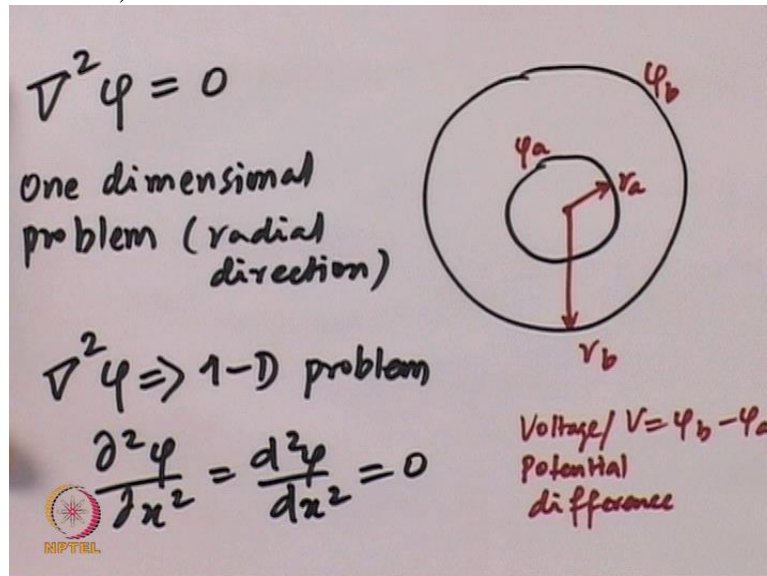 ∇²φ = 0
one dimensional
problem (radial
direction)
∇²φ => 1-D problem
∂²φ/∂x² = d²φ/dx² = 0
φb
φa
ra
rb
Voltage/ V = φb - φa
Potential
difference
NPTEL